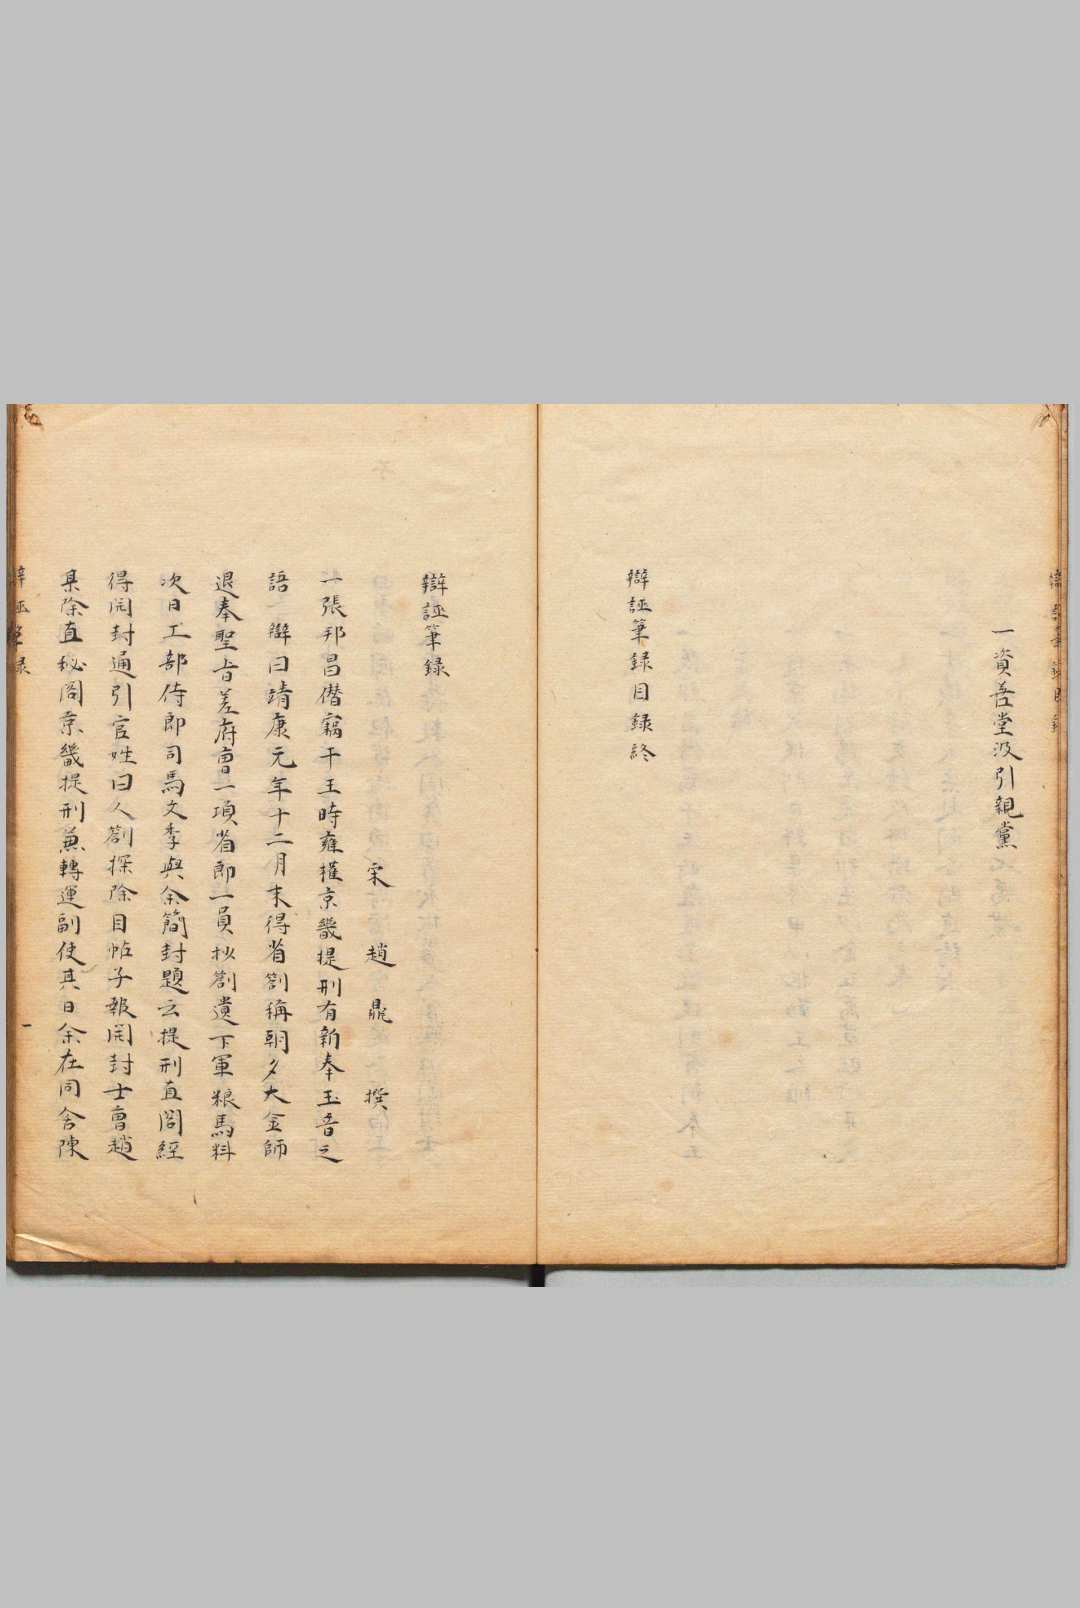 一資善堂汲引親黨
辯誣筆錄目錄終
辯誣筆錄
宋 趙鼎 撰
一張邦昌僭竊干王時雍擢京畿提刑有新奉玉音之
語 辯曰靖康元年十二月末得省劄稱朝夕大金師
退奉聖旨差府曹一項省郎一員抄劄遺下軍粮馬料
次日工部侍郎司馬文季與余簡封題云提刑直閣經
得開封通引官姓曰人劄探除目帖子報開封士曹趙
某除直秘閣京畿提刑兼轉運副使其日余在同舍陳
辯誣筆錄
一